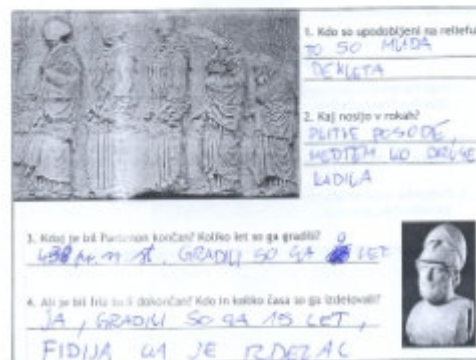 1. Kdo so upodobljeni na reliefu
TO SO MLADA
DEKLETA
2. Kaj nosijo v rokah?
PLITVE POSODE,
MEDTEM KO DRUGE
KADILA
3. Kdaj je bil Partenon končan? Koliko let so ga gradili?
438 pr. n. št. GRADILI SO GA 9 LET
4. Ali je bil friz tudi dokončan? Kdo in koliko časa so ga izdelovali?
JA, GRADILI SO GA 15 LET,
FIDIJA GA JE IZDELAL